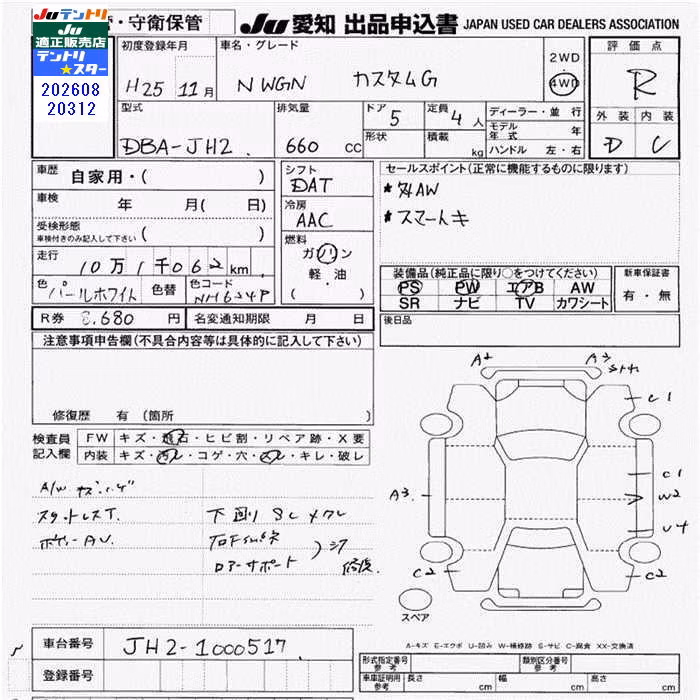 Juテントリ
Ju
適正販売店
テントリ
★スター
202608
20312
・守衛保管
Ju 愛知 出品申込書 JAPAN USED CAR DEALERS ASSOCIATION
初度登録年月
H25 11月
車名・グレード
NWGN カスタムG
2WD
4WD
評価点
R
外装 内装
D C
型式
DBA-JH2
排気量
660 CC
ドア 5
形状
定員 4人
積載 kg
ディーラー・並行
モデル年式 年
ハンドル 左・右
車歴 自家用・( )
車検 年 月( 日)
受検形態
車検付きのみ記入して下さい ( )
走行 10万1千062km
色 パールホワイト 色替 色コード NH624P
シフト
DAT
冷房
AAC
燃料
ガソリン
軽・油
( )
セールスポイント(正常に機能するものに限ります)
*外AW
*スマートキ
装備品(純正品に限り○をつけてください)
PS PW エアB AW
SR ナビ TV カワシート
新車保証書
有・無
後日品
R券 8,680 円 名変通知期限 月 日
注意事項申告欄(不具合内容等は具体的に記入して下さい)
修復歴 有 (箇所 )
検査員
記入欄
FW キズ・飛石・ヒビ割・リペア跡・X要
内装 キズ・汚レ・コゲ・穴・スレ・キレ・破レ
A/W キズ
スタットレスT.
ボディーAU.
下回り SL メクレ
ロアーサポート
修復
A2
A3
C1
A3
C1
W2
U4
C2
C2
スペア
A-キズ E-エクボ U-凹み W-補修跡 S-サビ C-腐食 XX-交換済
車台番号 JH2-1000517
登録番号
形式指定番号
参考
類別区分番号
参考
車庫証明用
参考
長さ cm
幅 cm
高さ cm